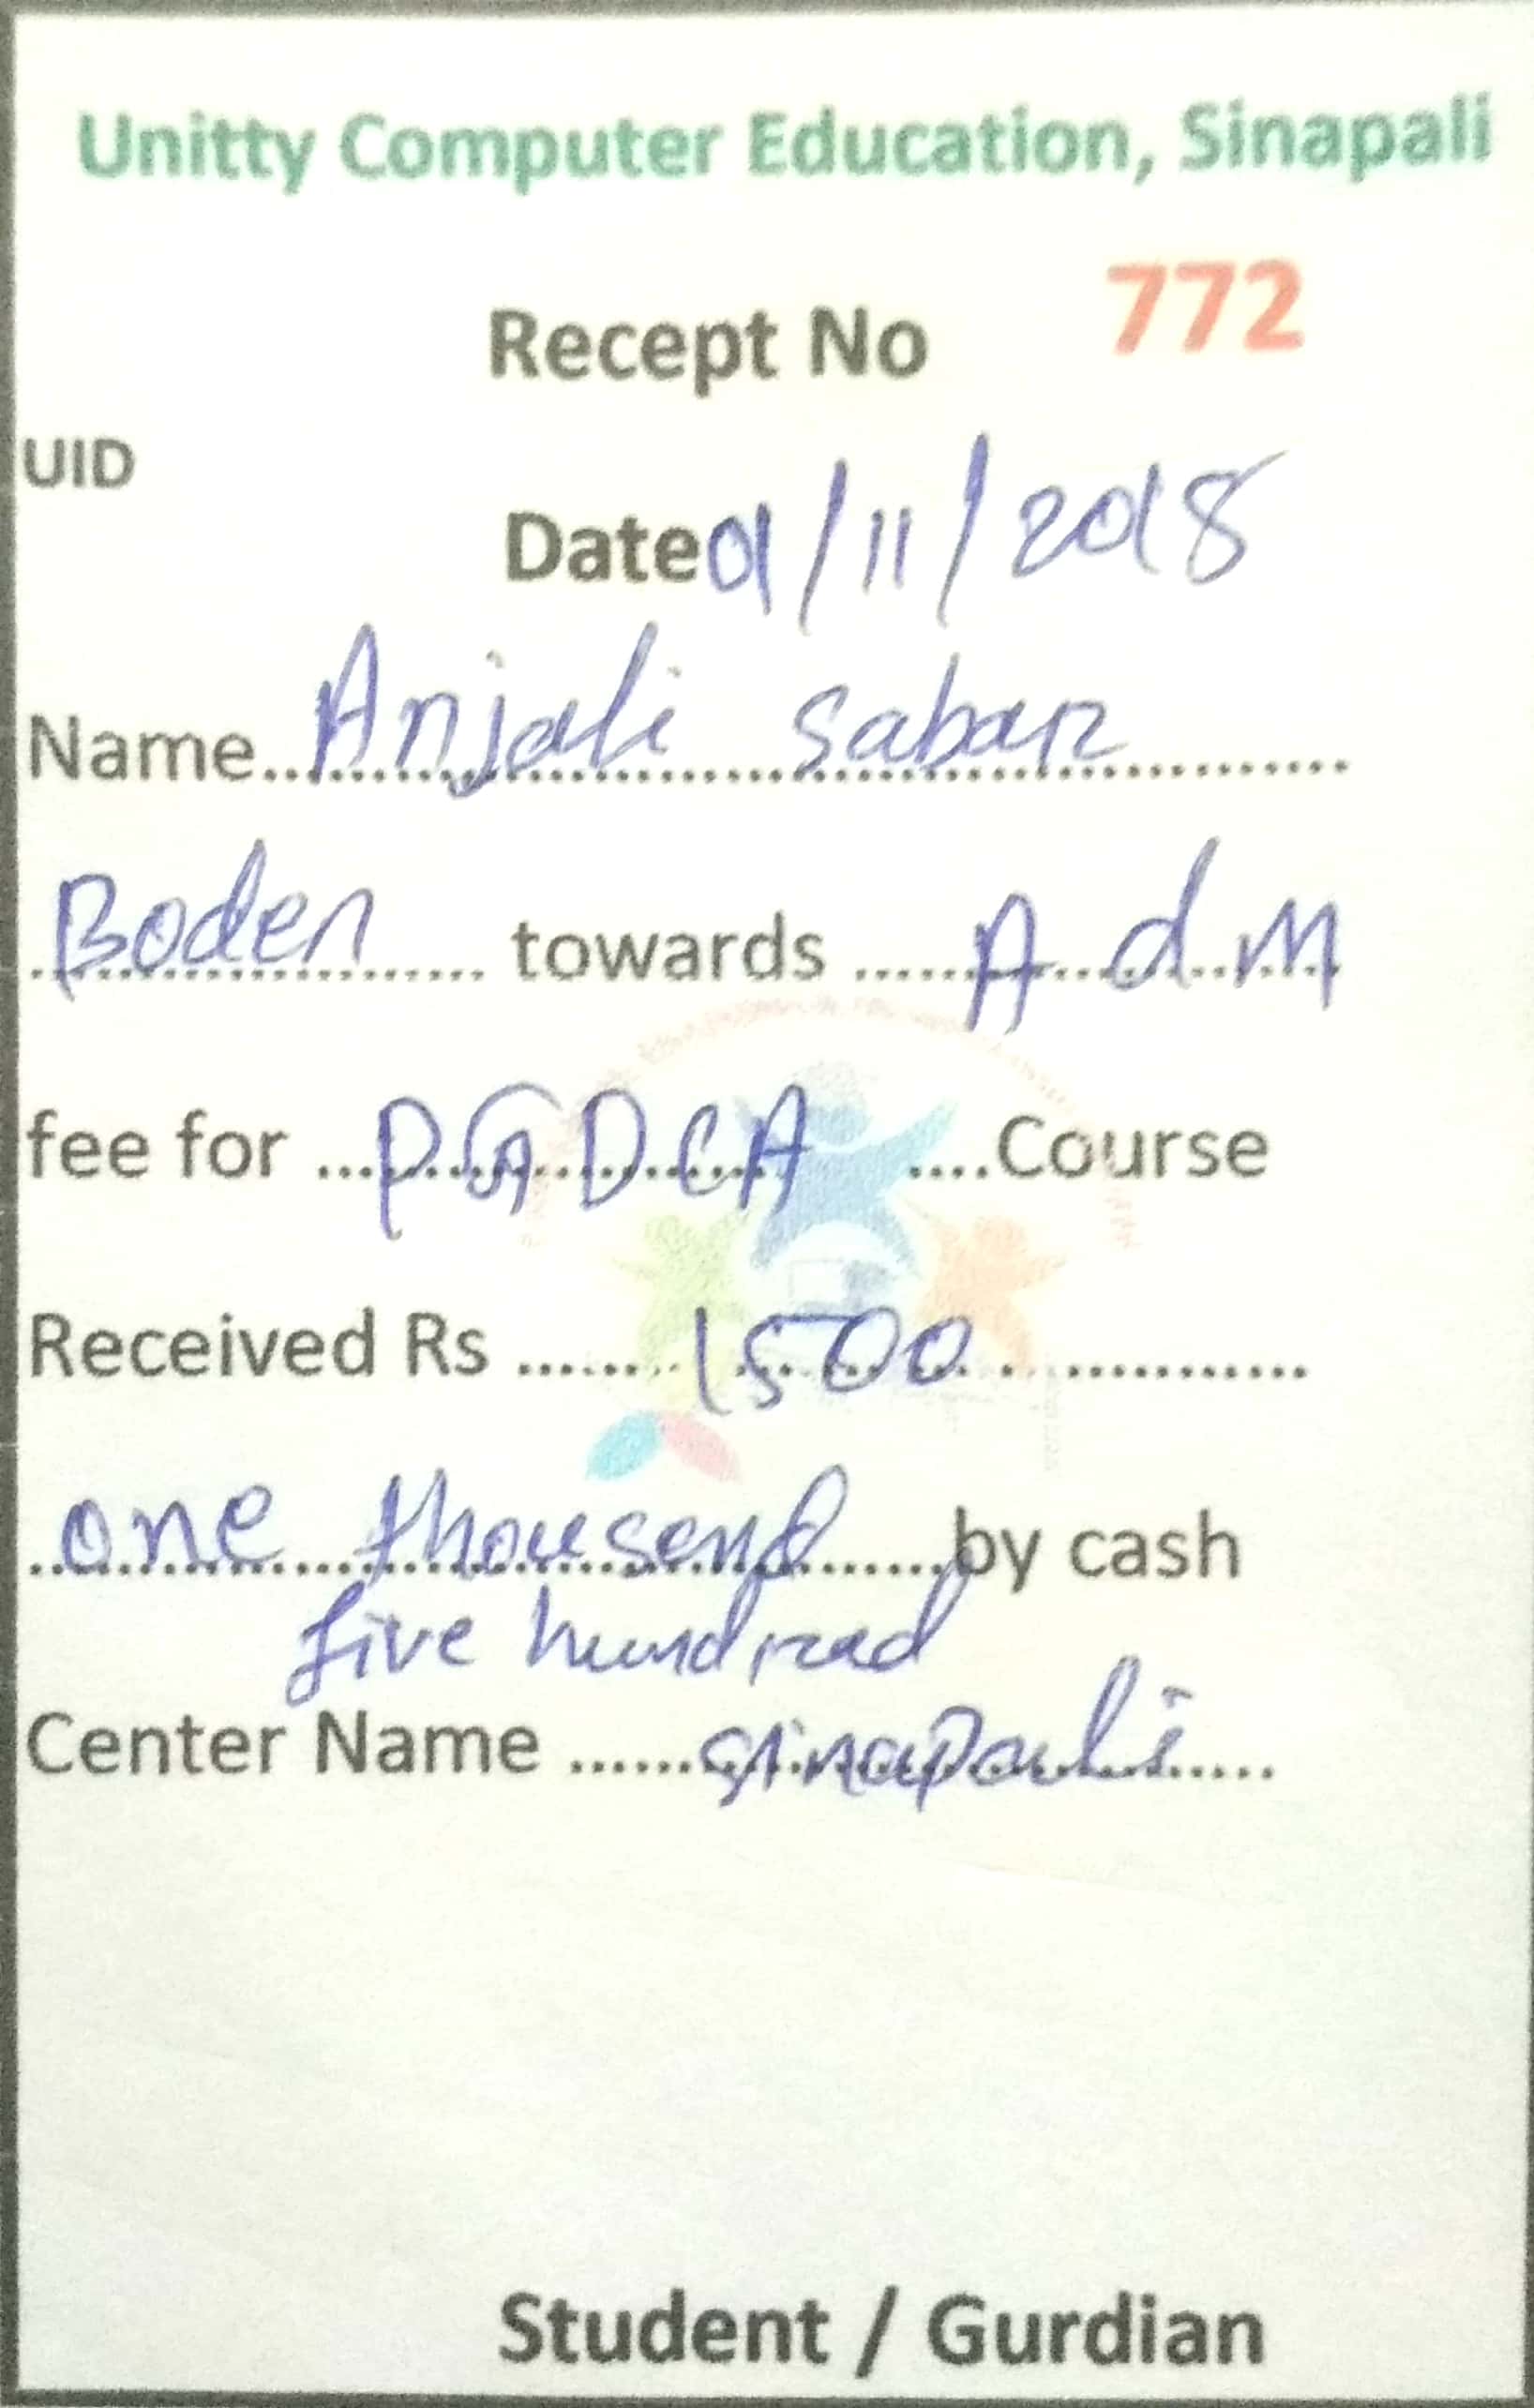 Unitty Computer Education, Sinapali
Recept No 772
UID
Date 01/11/2018
Name Anjali sabar
Boden towards A d M
fee for PGDCA Course
Received Rs 1500
one thousend by cash
five hundrad
Center Name sinapali
Student / Gurdian